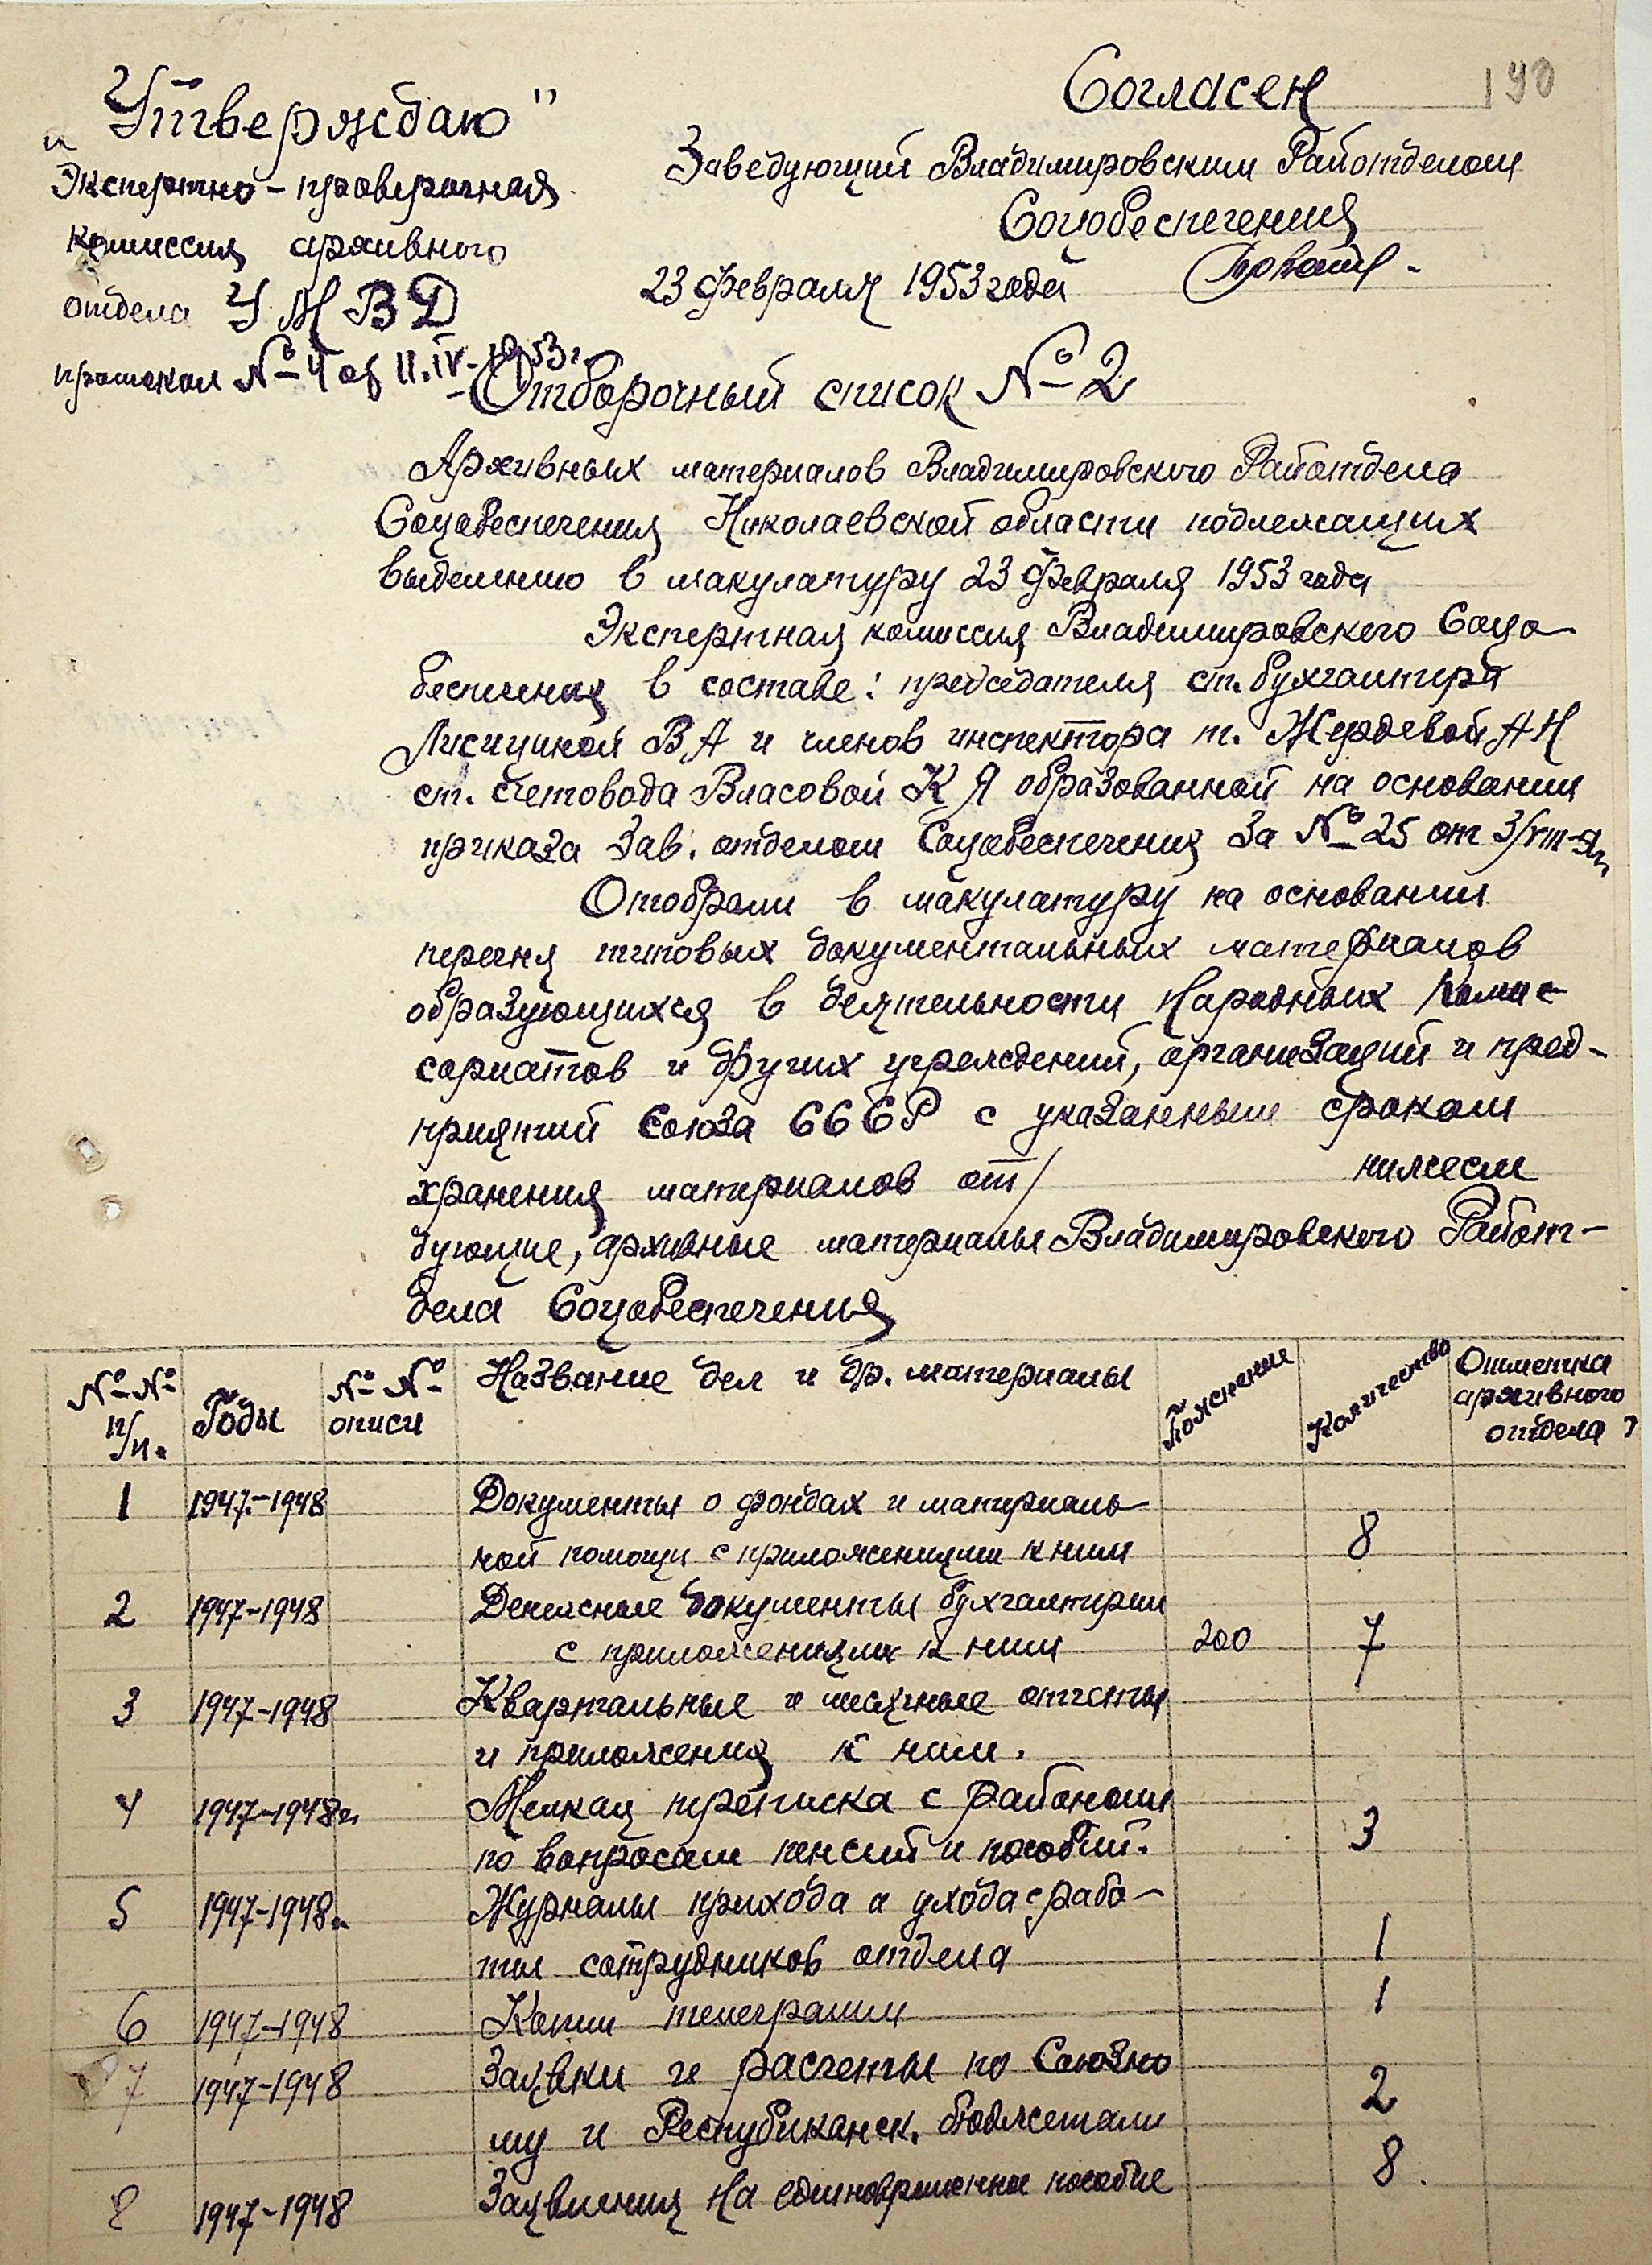 190
„Утверждаю"
Экспертно-проверочная
комиссия архивного
отдела УМВД
протокол № 4 от 11.IV-1953г.
Согласен
Заведующий Владимировским Райотделом
Соцобеспечения
23 февраля 1953 года
Отборочный список № 2
Архивных материалов Владимировского Райотдела
Соцобеспечения Николаевской области подлежащих
выделению в макулатуру 23 февраля 1953 года
Экспертная комиссия Владимировского Соцо-
беспечения в составе: председателя ст. бухгалтера
Лисициной В,А и членов инспектора т. Жердевой А Н
ст. счетовода Власовой К Я образованной на основании
приказа Зав. отделом Соцобеспечения За № 25 от
Отобрали в макулатуру на основании
перечня типовых документальных материалов
образующихся в деятельности Народных Комис-
сариатов и других учреждений, организаций и пред-
приятий Союза ССР с указанным сроком
хранения материалов от/ нижесле
дующие, архивные материалы Владимировского Райот-
дела Соцобеспечения
№-№ п/п. Годы №-№ описи Название дел и др. материалы Пояснение Количество Отметка архивного отдела
1 1947-1948 Документы о фондах и материаль-
ной помощи с приложениями к ним 8
2 1947-1948 Денежные документы бухгалтерии
с приложениями к ним 200 7
3 1947-1948 Квартальные и месячные отчеты
и приложения к ним.
4 1947-1948г. Мелкая переписка с районами 3
по вопросам пенсий и пособий.
5 1947-1948г. Журналы прихода и ухода с рабо-
ты сотрудников отдела 1
6 1947-1948 Копии телеграмм 1
7 1947-1948 Заявки и расчеты по Союзно
му и Республиканск. бюджетам 2
8 1947-1948 Заявления на единовременные пособие 8.